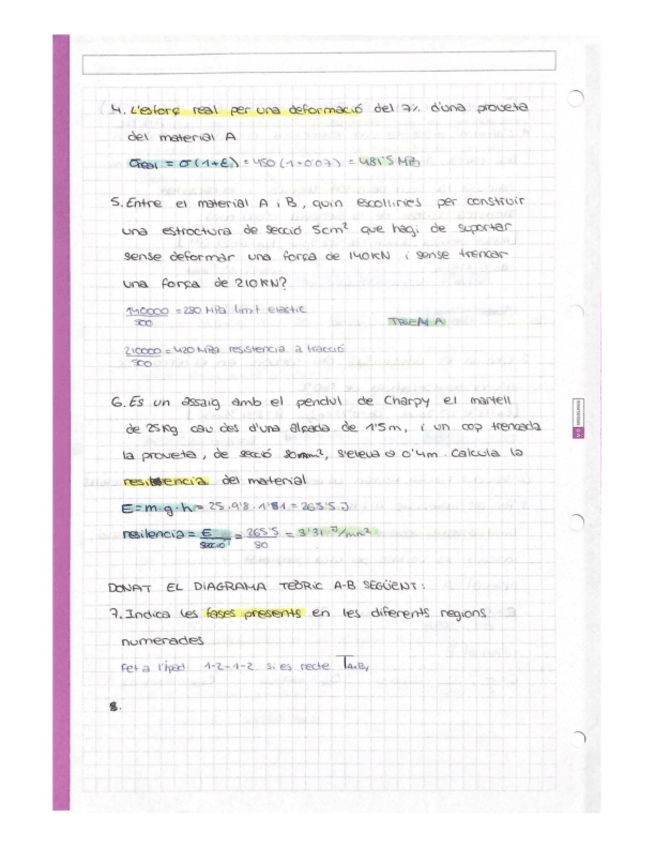 4. L'esforç real per una deformació del 7% d'una proveta
del material A
σreal = σ(1+ε) = 450 (1+0'07) = 481'5 MPa
5. Entre el material A i B, quin escolliries per construir
una estructura de secció 5cm² que hagi de suportar
sense deformar una força de 140KN i sense trencar
una força de 210KN?
140000 = 280 MPa límit elàstic
500
TRIEM A
210000 = 420 MPa resistencia a tracció
500
6. Es un assaig amb el pendul de Charpy el martell
de 25Kg cau des d'una alçada de 1'5m, i un cop trencada
la proveta, de secció 80mm², s'eleva a 0'4m. Calcula la
resiliencia del material
E = m·g·h = 25·9'8·1'1 = 265'5 J
resilencia = E = 265'5 = 3'31 J/mm²
secció 80
DONAT EL DIAGRAMA TEÒRIC A-B SEGÜENT:
7. Indica les fases presents en les diferents regions
numerades
Fet a l'ipad 1-2-1-2 si es recte TA,B,
8.